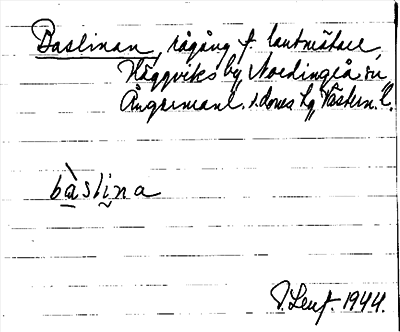 Baslinan, rågång f. lantmätare,
Häggviks by, Nordingrå sn,
Ångermanl. s. domss. lg, Västern. l.
bàslina
P. Lenf. 1944.